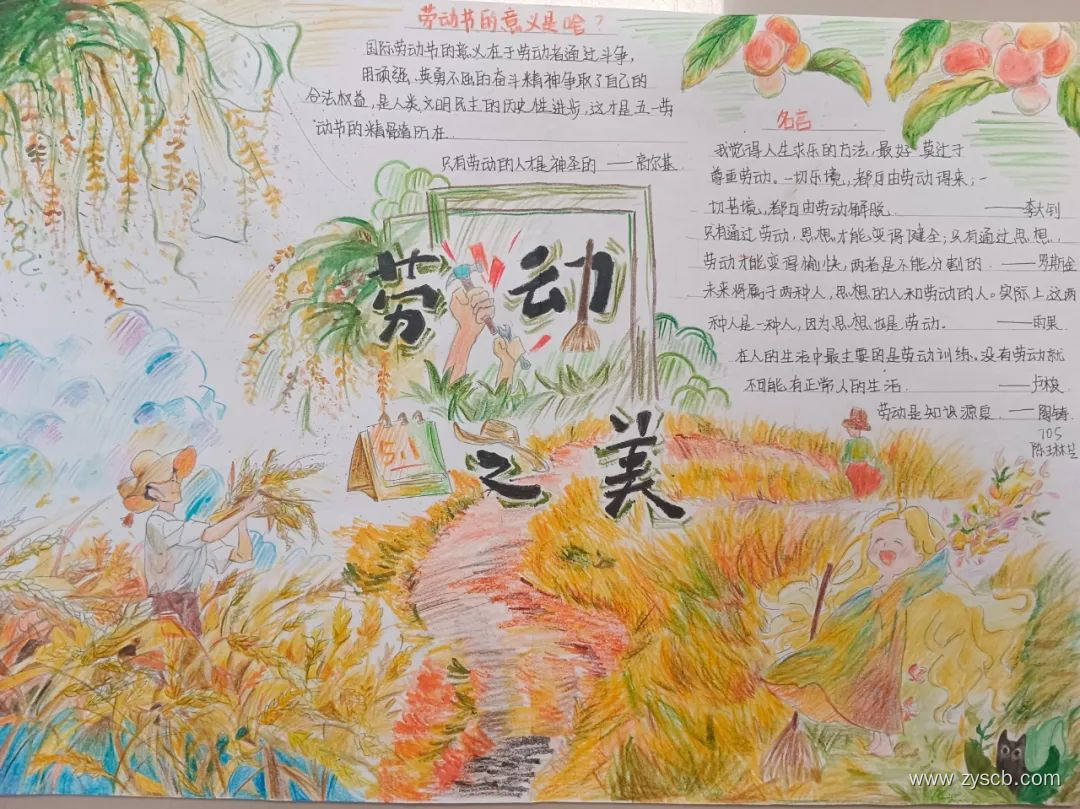 劳动节的意义是啥?
国际劳动节的意义在于劳动者通过斗争,
用顽强、英勇不屈的奋斗精神争取了自己的
合法权益,是人类文明民主的历史性进步,这才是五一劳
动节的精髓所在.
只有劳动的人才是神圣的 ——高尔基
名言
我觉得人生求乐的方法,最好莫过于
尊重劳动。一切乐境,都可由劳动得来,一
切苦境,都可由劳动解脱. ——李大钊
只有通过劳动,思想才能变得健全;只有通过思想,
劳动才能变得愉快,两者是不能分割的. ——罗斯金
未来将属于两种人,思想的人和劳动的人。实际上这两
种人是一种人,因为思想也是劳动. ——雨果
在人的生活中最主要的是劳动训练。没有劳动就
不可能有正常人的生活. ——卢梭
劳动是知识源泉. ——陶铸
705
劳动
5.1
之美
www.zyscb.com